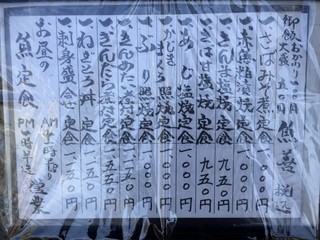 御飯 おかわり 五〇円
大盛 五〇円
魚善 税込
一、さばみそ煮定食 一、〇〇〇円
一、赤魚粕漬焼定食 一、〇〇〇円
一、さんま塩焼定食 九五〇円
一、さば塩焼定食 九五〇円
塩焼定食 一、〇〇〇円
一、かじきまぐろ照焼定食 一、〇〇〇円
一、ぶり照焼定食 一、〇〇〇円
一、きんめだい煮定食 一、一五〇円
一、ぎんだら煮定食 一、五五〇円
一、ねぎとろ丼定食 一、〇〇〇円
一、刺身盛合せ定食 一、五〇〇円
お昼の魚定食
営業